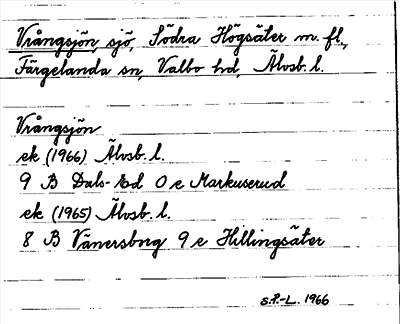 Vrångsjön sjö, Södra Högsäter m. fl.,
Färgelanda sn, Valbo hd, Älvsb. l.
Vrångsjön
ek (1966) Älvsb. l.
9 B Dals-Ed 0 e Markuserud
ek (1965) Älvsb. l.
8 B Vänersborg 9 e Hillingsäter
S.P.-L. 1966